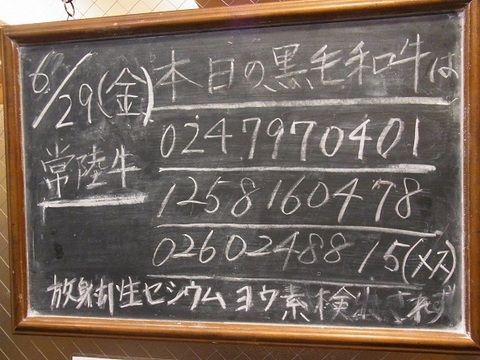 6/29(金)
本日の黒毛和牛は
常陸牛
0247970401
1258160478
0260248815(メス)
放射性セシウム ヨウ素検出されず